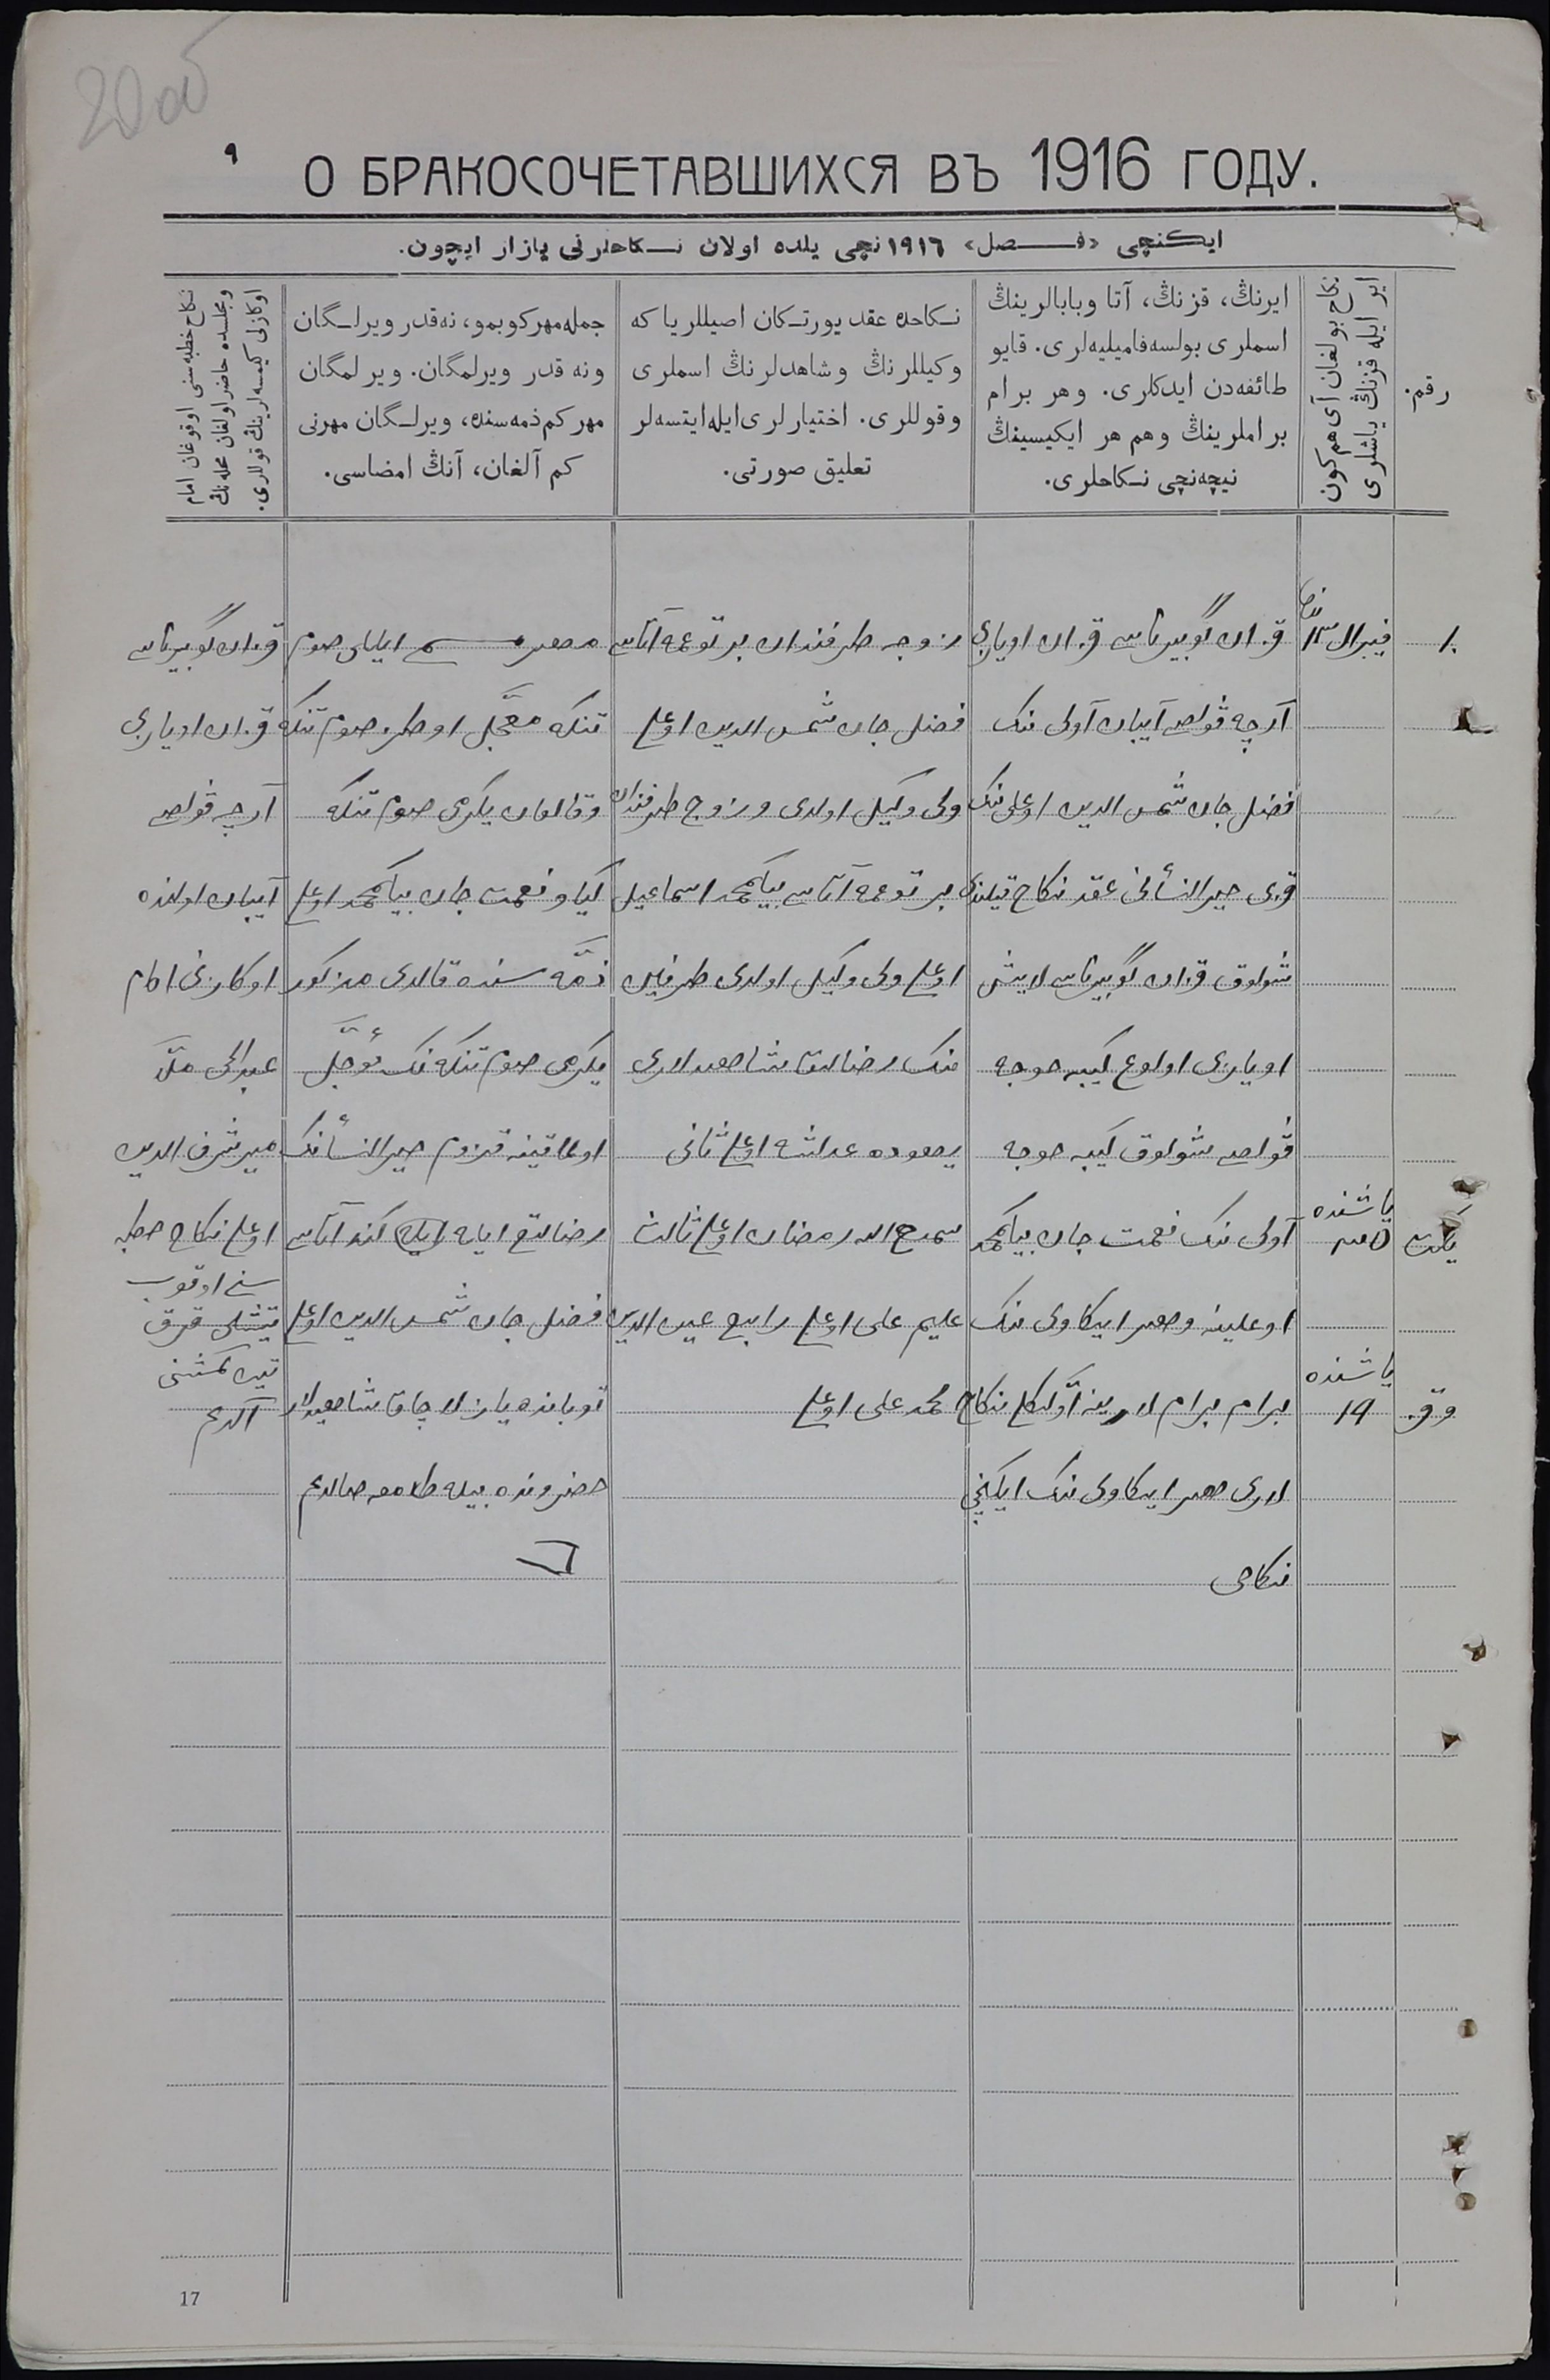 20 об
٩
О БРАКОСОЧЕТАВШИХСЯ ВЪ 1916 ГОДУ.
ایکنچی «فصل» ١٩١٦نچی یلده اولان نکاحلرنی یازار ایچون.
رقم.
نکاح بولغان آی هم کون
ایر ایله قزنڭ یاشلری
ایرنڭ، قزنڭ، آتا وبابالرینڭ
اسملری بولسه فامیلیه‌لری. قایو
طائفه‌دن ایدکلری. وهر برام
براملرینڭ وهم هر ایکیسینڭ
نیچه‌نچی نکاحلری.
نکاحده عقد یورتکان اصیللر یا که
وکیللرنڭ وشاهدلرنڭ اسملری
وقوللری. اختیارلری ایله ایتسه‌لر
تعلیق صورتی.
جمله مهر کوبمو، نه قدر ویرلگان
ونه قدر ویرلمگان. ویرلمگان
مهر کم ذمه‌سنده، ویرلگان مهرنی
کم آلغان، آنڭ امضاسی.
نکاح خطبه‌سنی اوقوغان امام
ومجلسده حاضر اولغان محله‌نڭ
اوکازلی کیمسه‌لرینڭ قوللری.
١
فیبرال ١٣
قزان گوبیرناسی قزان اویازی
آرچه ڤولصی آیبان آولی ننک
فضل جان شمس الدین اوغلی ننک
قزی خیرالنسأنی عقد نکاح قیلندی
شولوق قزان گوبیرناسی لایش
اویازی اولوغ کیبه خوجه
ڤولصی شولوق کیبه خوجه
آولی ننک نعمت جان بیکمحمد
اوغلینه وهر ایکاوی ننک
برام برام لارینه آولکی نکاح
لاری هر ایکاوی ننک ایکنچی
نکاحی
یاشنده
یکت
یاشنده
19
وقز
زوجه طرفندان بر توغمه آتاسی
فضل جان شمس الدین اوغلی
ولی وکیل اولدی وزوج طرفندان
بر توغمه آتاسی بیکمحمد اسماعیل
اوغلی ولی وکیل اولدی طرفین
ننک رضالق شاهدلاری
اوغلی ثانی
سمیع الله رمضان اوغلی ثالث
علیم علی اوغلی رابع عین الدین
محمد علی اوغلی
مهر ایللی صوم
تنکه معجّل اوطز صوم تنکه
وقالغان یکرمی صوم تنکه
کیاو نعمت جان بیکمحمد اوغلی
ذمّه سنده قالدی مذکور
یکرمی صوم تنکه ننک مؤجّل
اولماقینه قزوم خیرالنسأننک
رضالقی ایله کند آتاسی
فضل جان شمس الدین اوغلی
توبانده یازلاچاق شاهدلار
حضرونده بیله طامغه صالدم
قزان گوبیرناسی
قزان اویازی
آرچه ڤولصی
آیبان اولنده
اوکازنی امام
عبدالحی ملّا
میر شرف الدین
اوغلی نکاح خطبه
سنی اوقوب
یتمشلی قرق
تین کمشنی
آلدم
17